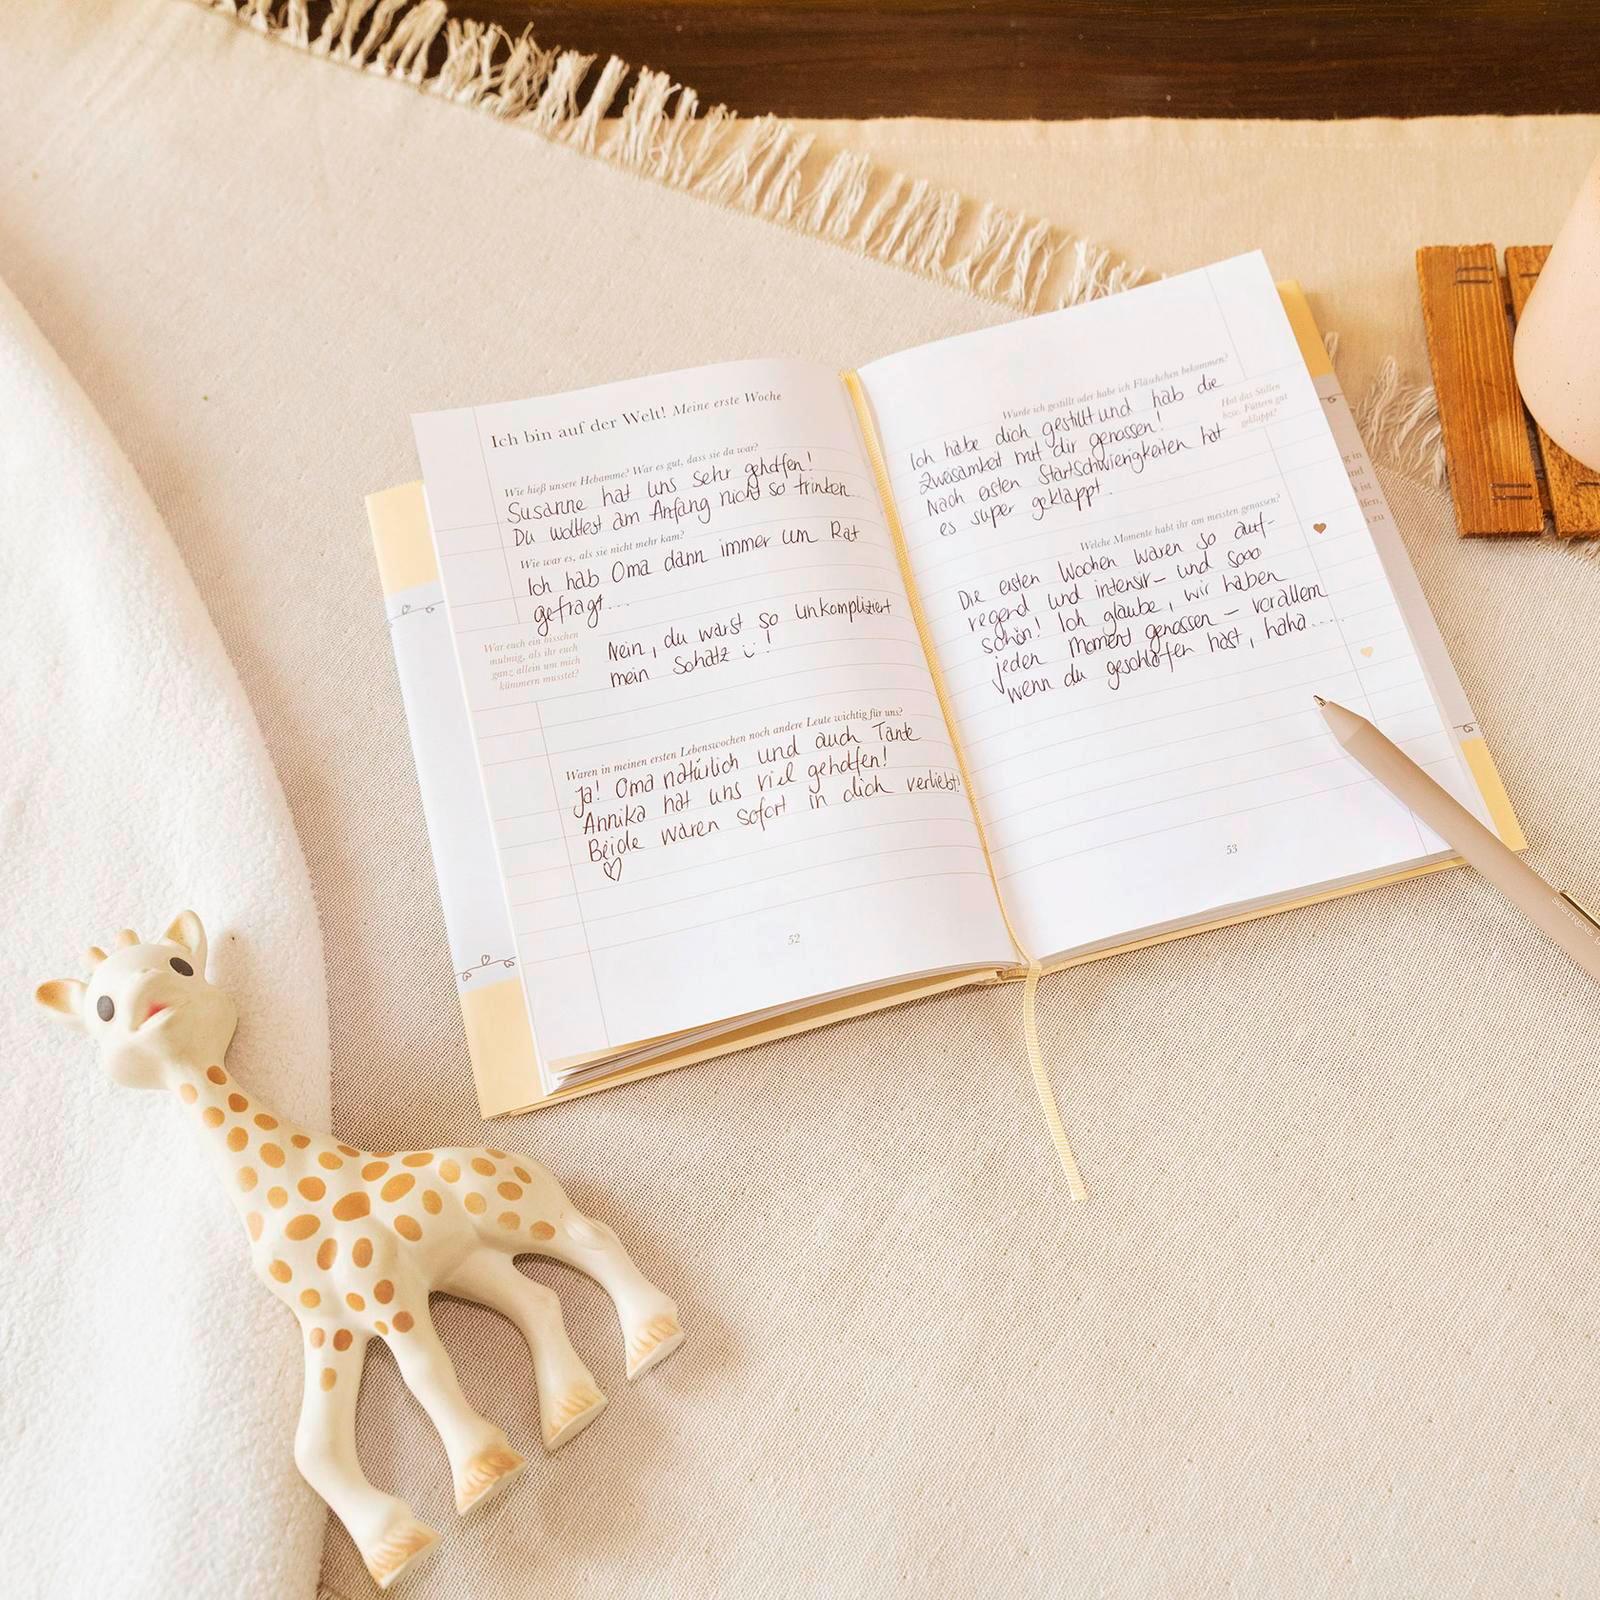 Ich bin auf der Welt! Meine erste Woche
Wie hieß unsere Hebamme? War es gut, dass sie da war?
Susanne hat uns sehr geholfen!
Du wolltest am Anfang nicht so trinken..
Wie war es, als sie nicht mehr kam?
Ich hab Oma dann immer um Rat
gefragt...
War euch ein bisschen
mulmig, als ihr euch
ganz allein um mich
kümmern musstet?
Nein, du warst so unkompliziert
mein Schatz !
Waren in meinen ersten Lebenswochen noch andere Leute wichtig für uns?
Ja! Oma natürlich und auch Tante
Annika hat uns viel geholfen!
Beide waren sofort in dich verliebt!
♡
52
Wurde ich gestillt oder habe ich Fläschchen bekommen?
Ich habe dich gestillt und hab die
Zweisamkeit mit dir genossen!
Hat das Stillen
bzw. Füttern gut
geklappt?
Nach ersten Startschwierigkeiten hat
es super geklappt.
Welche Momente habt ihr am meisten genossen?
Die ersten Wochen waren so auf-
regend und intensiv – und sooo
schön! Ich glaube, wir haben
jeden Moment genossen – vor allem
wenn du geschlafen hast, haha....
53
SØSTRENE